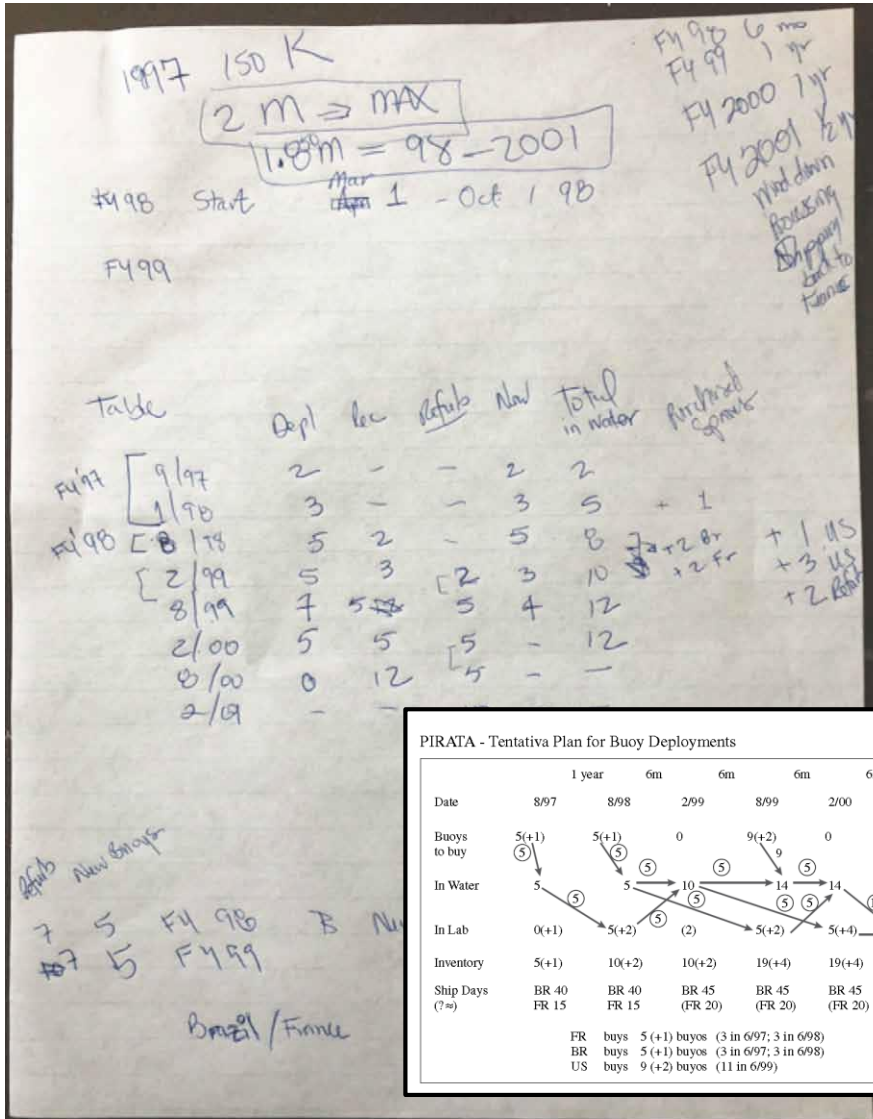 1997 150 K
2 m ⇒ MAX
1.8 m = 98-2001
FY 98 6 mo
FY 99 1 yr
FY 2000 1 yr
FY 2001 1/2 yr
Wind down
Processing
Shipping
back to
France
FY98 Start Mar 1 - Oct 1 98
FY99
Table Depl Rec Refurb New Total in water Purchased Spares
FY'97 9/97 2 - - 2 2
1/98 3 - - 3 5 + 1
FY'98 8/98 5 2 - 5 8 +2 Br + 1 US
2/99 5 3 2 3 10 +2 Fr + 3 US
8/99 7 5 5 4 12 + 2 Refurb
2/00 5 5 5 - 12
8/00 0 12 5 - -
2/01 - -
Refurb New Buoys
7 5 FY 98 B
7 5 FY 99
Brazil / France
PIRATA - Tentativa Plan for Buoy Deployments
1 year 6m 6m 6m
Date 8/97 8/98 2/99 8/99 2/00
Buoys 5(+1) 5(+1) 0 9(+2) 0
to buy 5 5 9
5 5 5
In Water 5 5 10 14 14
5 5 5 5
5
In Lab 0(+1) 5(+2) (2) 5(+2) 5(+4)
Inventory 5(+1) 10(+2) 10(+2) 19(+4) 19(+4)
Ship Days BR 40 BR 40 BR 45 BR 45 BR 45
(?≈) FR 15 FR 15 (FR 20) (FR 20) (FR 20)
FR buys 5 (+1) buyos (3 in 6/97; 3 in 6/98)
BR buys 5 (+1) buyos (3 in 6/97; 3 in 6/98)
US buys 9 (+2) buyos (11 in 6/99)